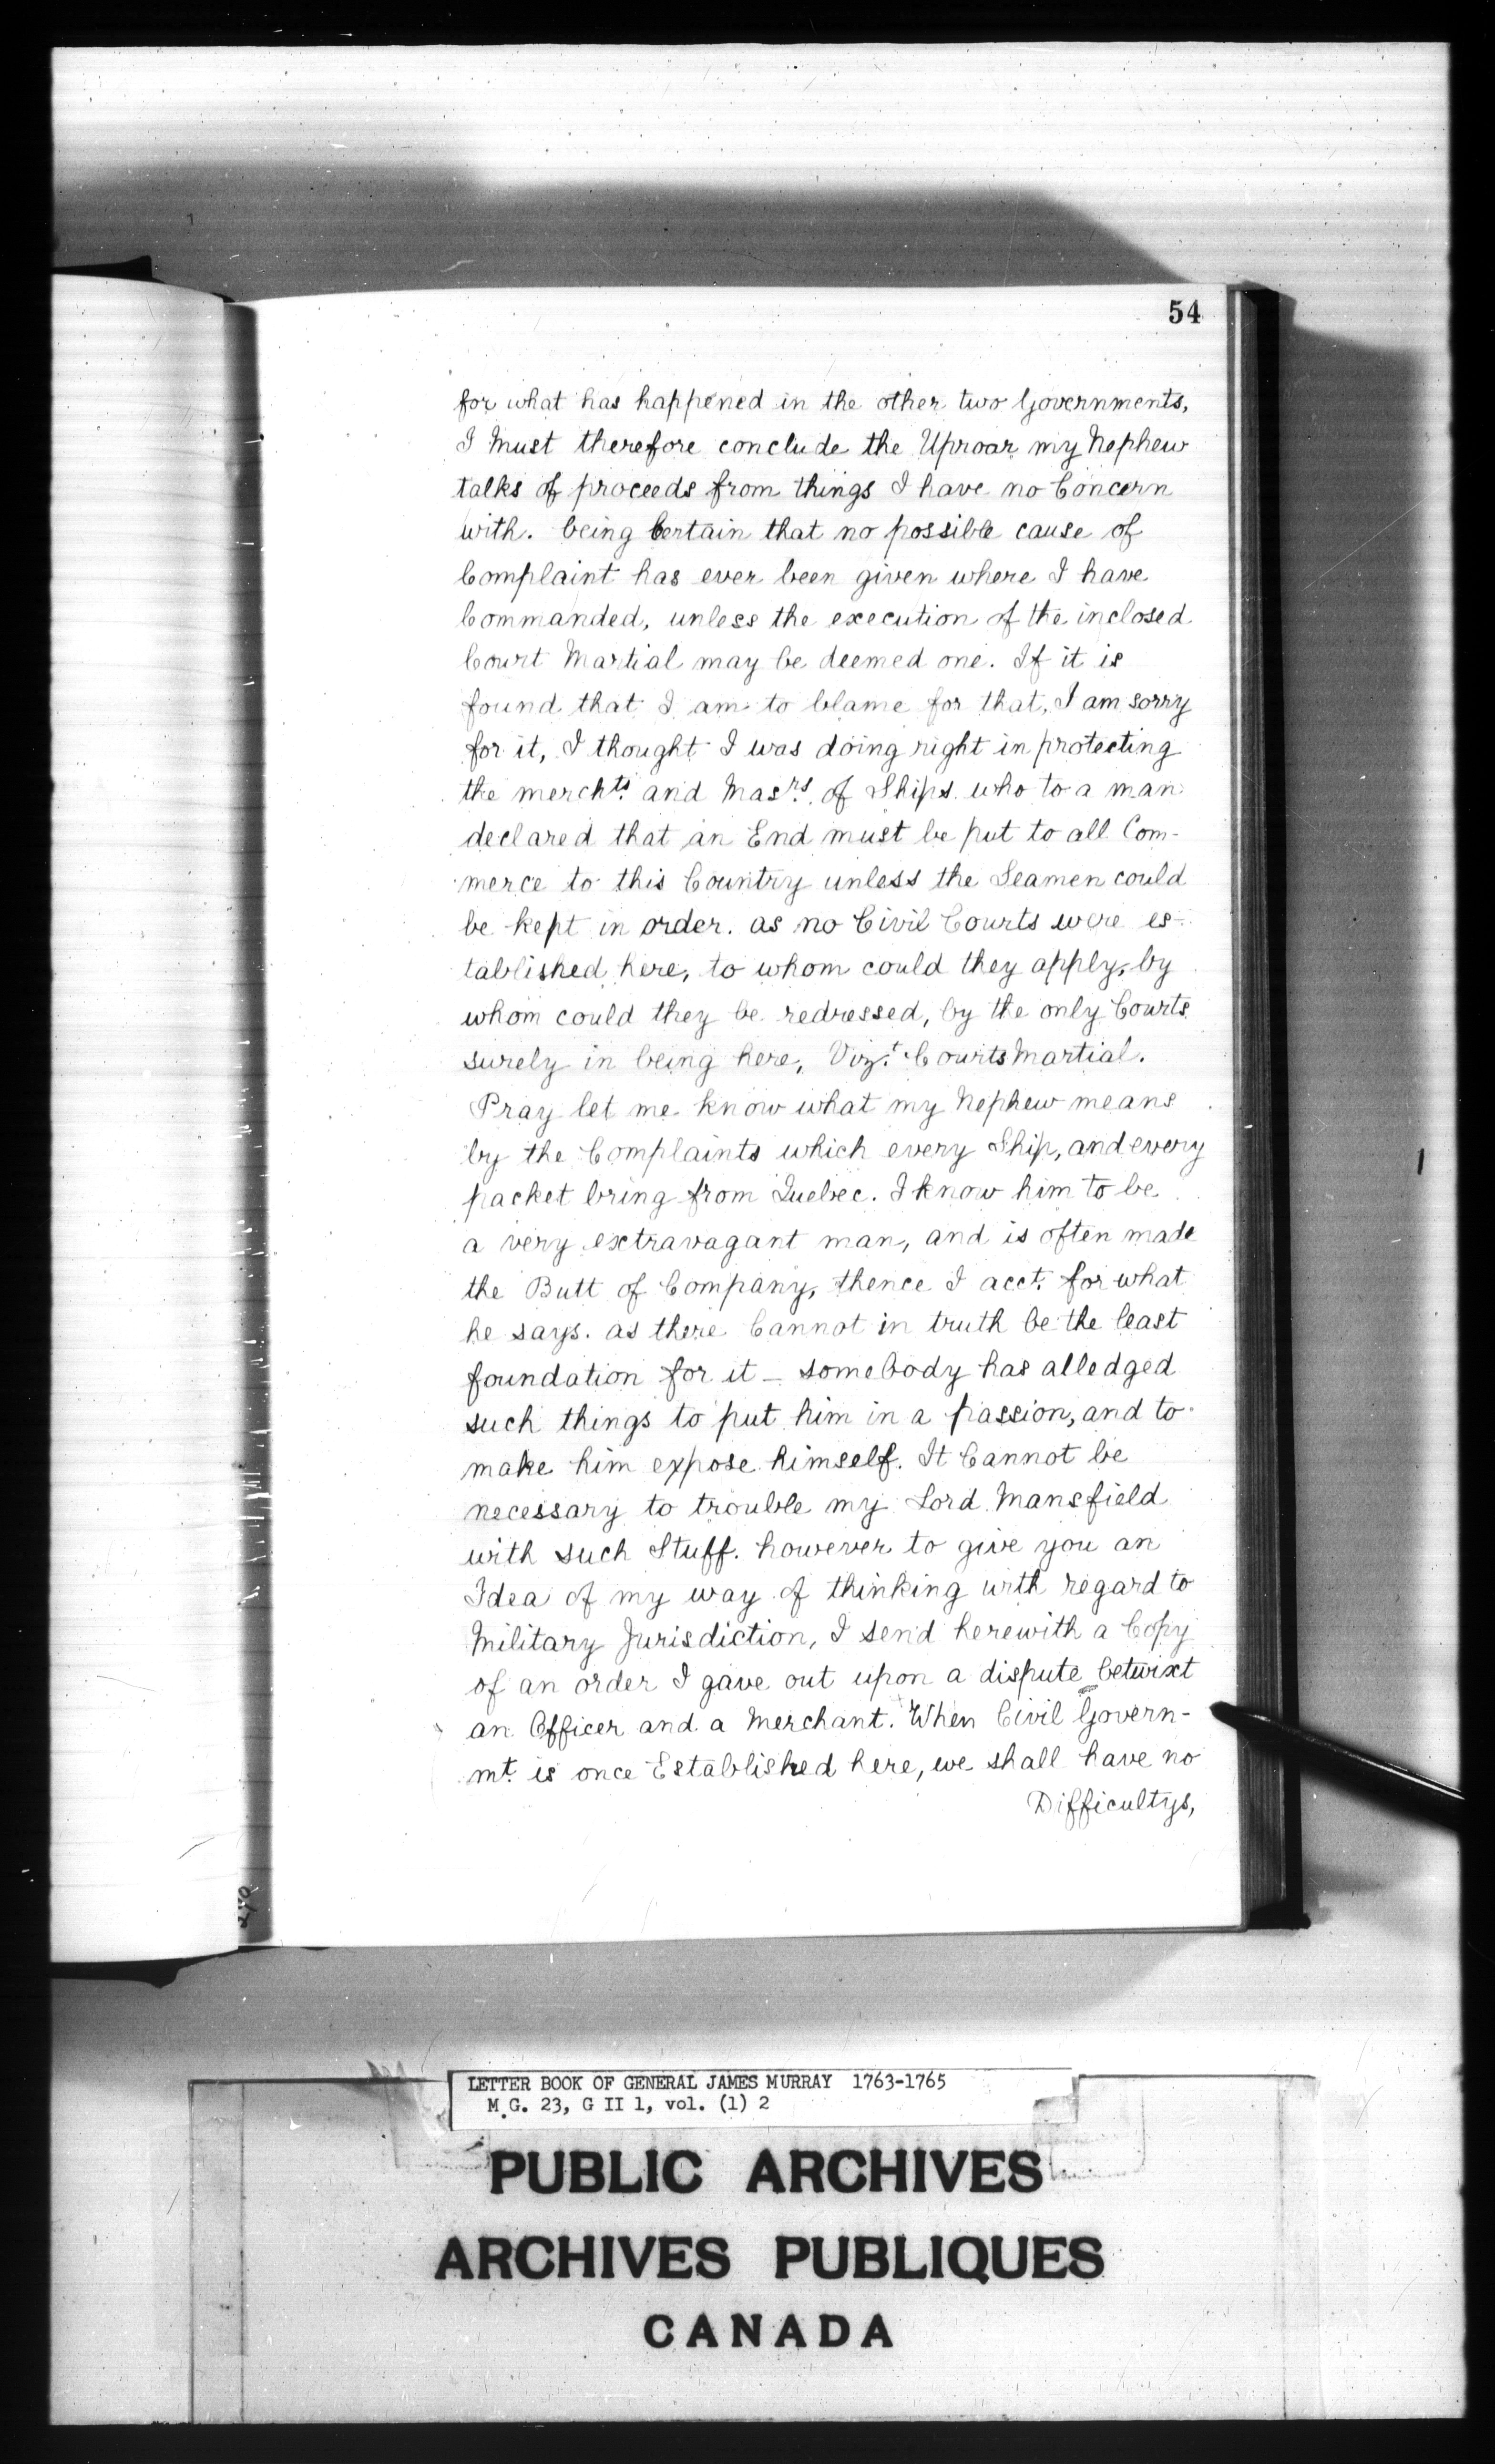 54
for what has happened in the other two Governments,
I Must therefore conclude the Uproar my Nephew
talks of proceeds from things I have no Concern
with. being Certain that no possible cause of
Complaint has ever been given where I have
Commanded, unless the execution of the inclosed
Court Martial may be deemed one. If it is
found that I am to blame for that, I am sorry
for it, I thought I was doing right in protecting
the merchts. and Masrs. of Ships who to a man
declared that an End must be put to all Com-
merce to this Country unless the Seamen could
be kept in order. as no Civil Courts were es-
tablished here, to whom could they apply, by
whom could they be redressed, by the only Courts
surely in being here, Vizt. Courts Martial.
Pray let me know what my Nephew means
by the Complaints which every Ship, and every
packet bring from Quebec. I know him to be
a very extravagant man, and is often made
the Butt of Company, thence I acct. for what
he says. as there Cannot in truth be the least
foundation for it — somebody has alledged
such things to put him in a passion, and to
make him expose himself. It Cannot be
necessary to trouble my Lord Mansfield
with such Stuff. however to give you an
Idea of my way of thinking with regard to
Military Jurisdiction, I send herewith a Copy
of an order I gave out upon a dispute betwixt
an Officer and a Merchant. When Civil Govern-
mt. is once Established here, we shall have no
Difficultys,
LETTER BOOK OF GENERAL JAMES MURRAY 1763-1765
M.G. 23, G II 1, vol. (1) 2
PUBLIC ARCHIVES
ARCHIVES PUBLIQUES
CANADA